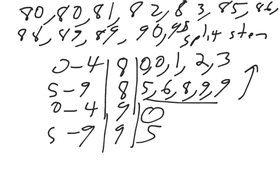 80, 80, 81, 82, 83, 85, 86,
88, 89, 89, 90, 95 split stem
0-4 | 8 | 0, 0, 1, 2, 3
5-9 | 8 | 5, 6, 8, 9, 9
0-4 | 9 | 0
5-9 | 9 | 5